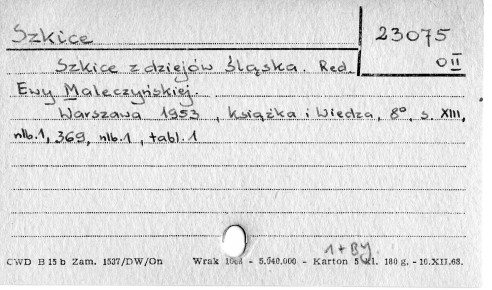 Szkice
23075
O II
Szkice z dziejów Śląska. Red.
Ewy Maleczyńskiej.
Warszawa 1953, Książka i Wiedza, 8°, s. XIII,
nlb.1, 369, nlb.1, tabl.1
1+BY
CWD B 15 b Zam. 1537/DW/On Wrak - 5.540.000 - Karton 5 kl. 180 g. - 10.XII.68.